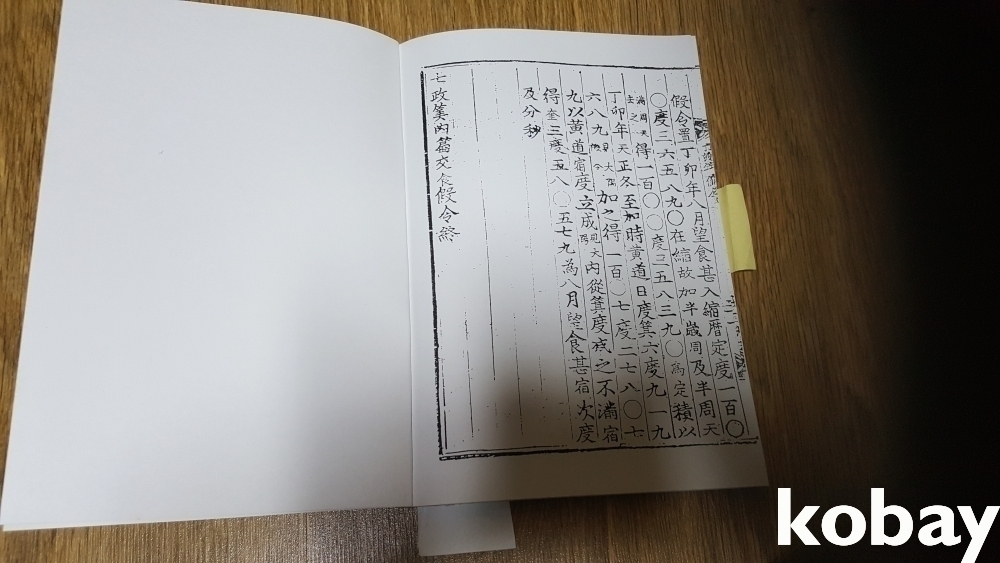 假令置丁卯年八月望食甚入縮曆定度一百〇
〇度三六五八九〇在縮故加半歲周及半周天
滿周天去之得一百〇〇度三五八三九〇為定積以
丁卯年天正冬至加時黃道日度箕六度九一九
六八九加之得一百〇七度二七八〇七
九以黃道宿度立成內從箕度去之不滿宿
得奎三度五八〇五七九為八月望食甚宿次度
及分秒
七政筭內篇交食假令終
kobay